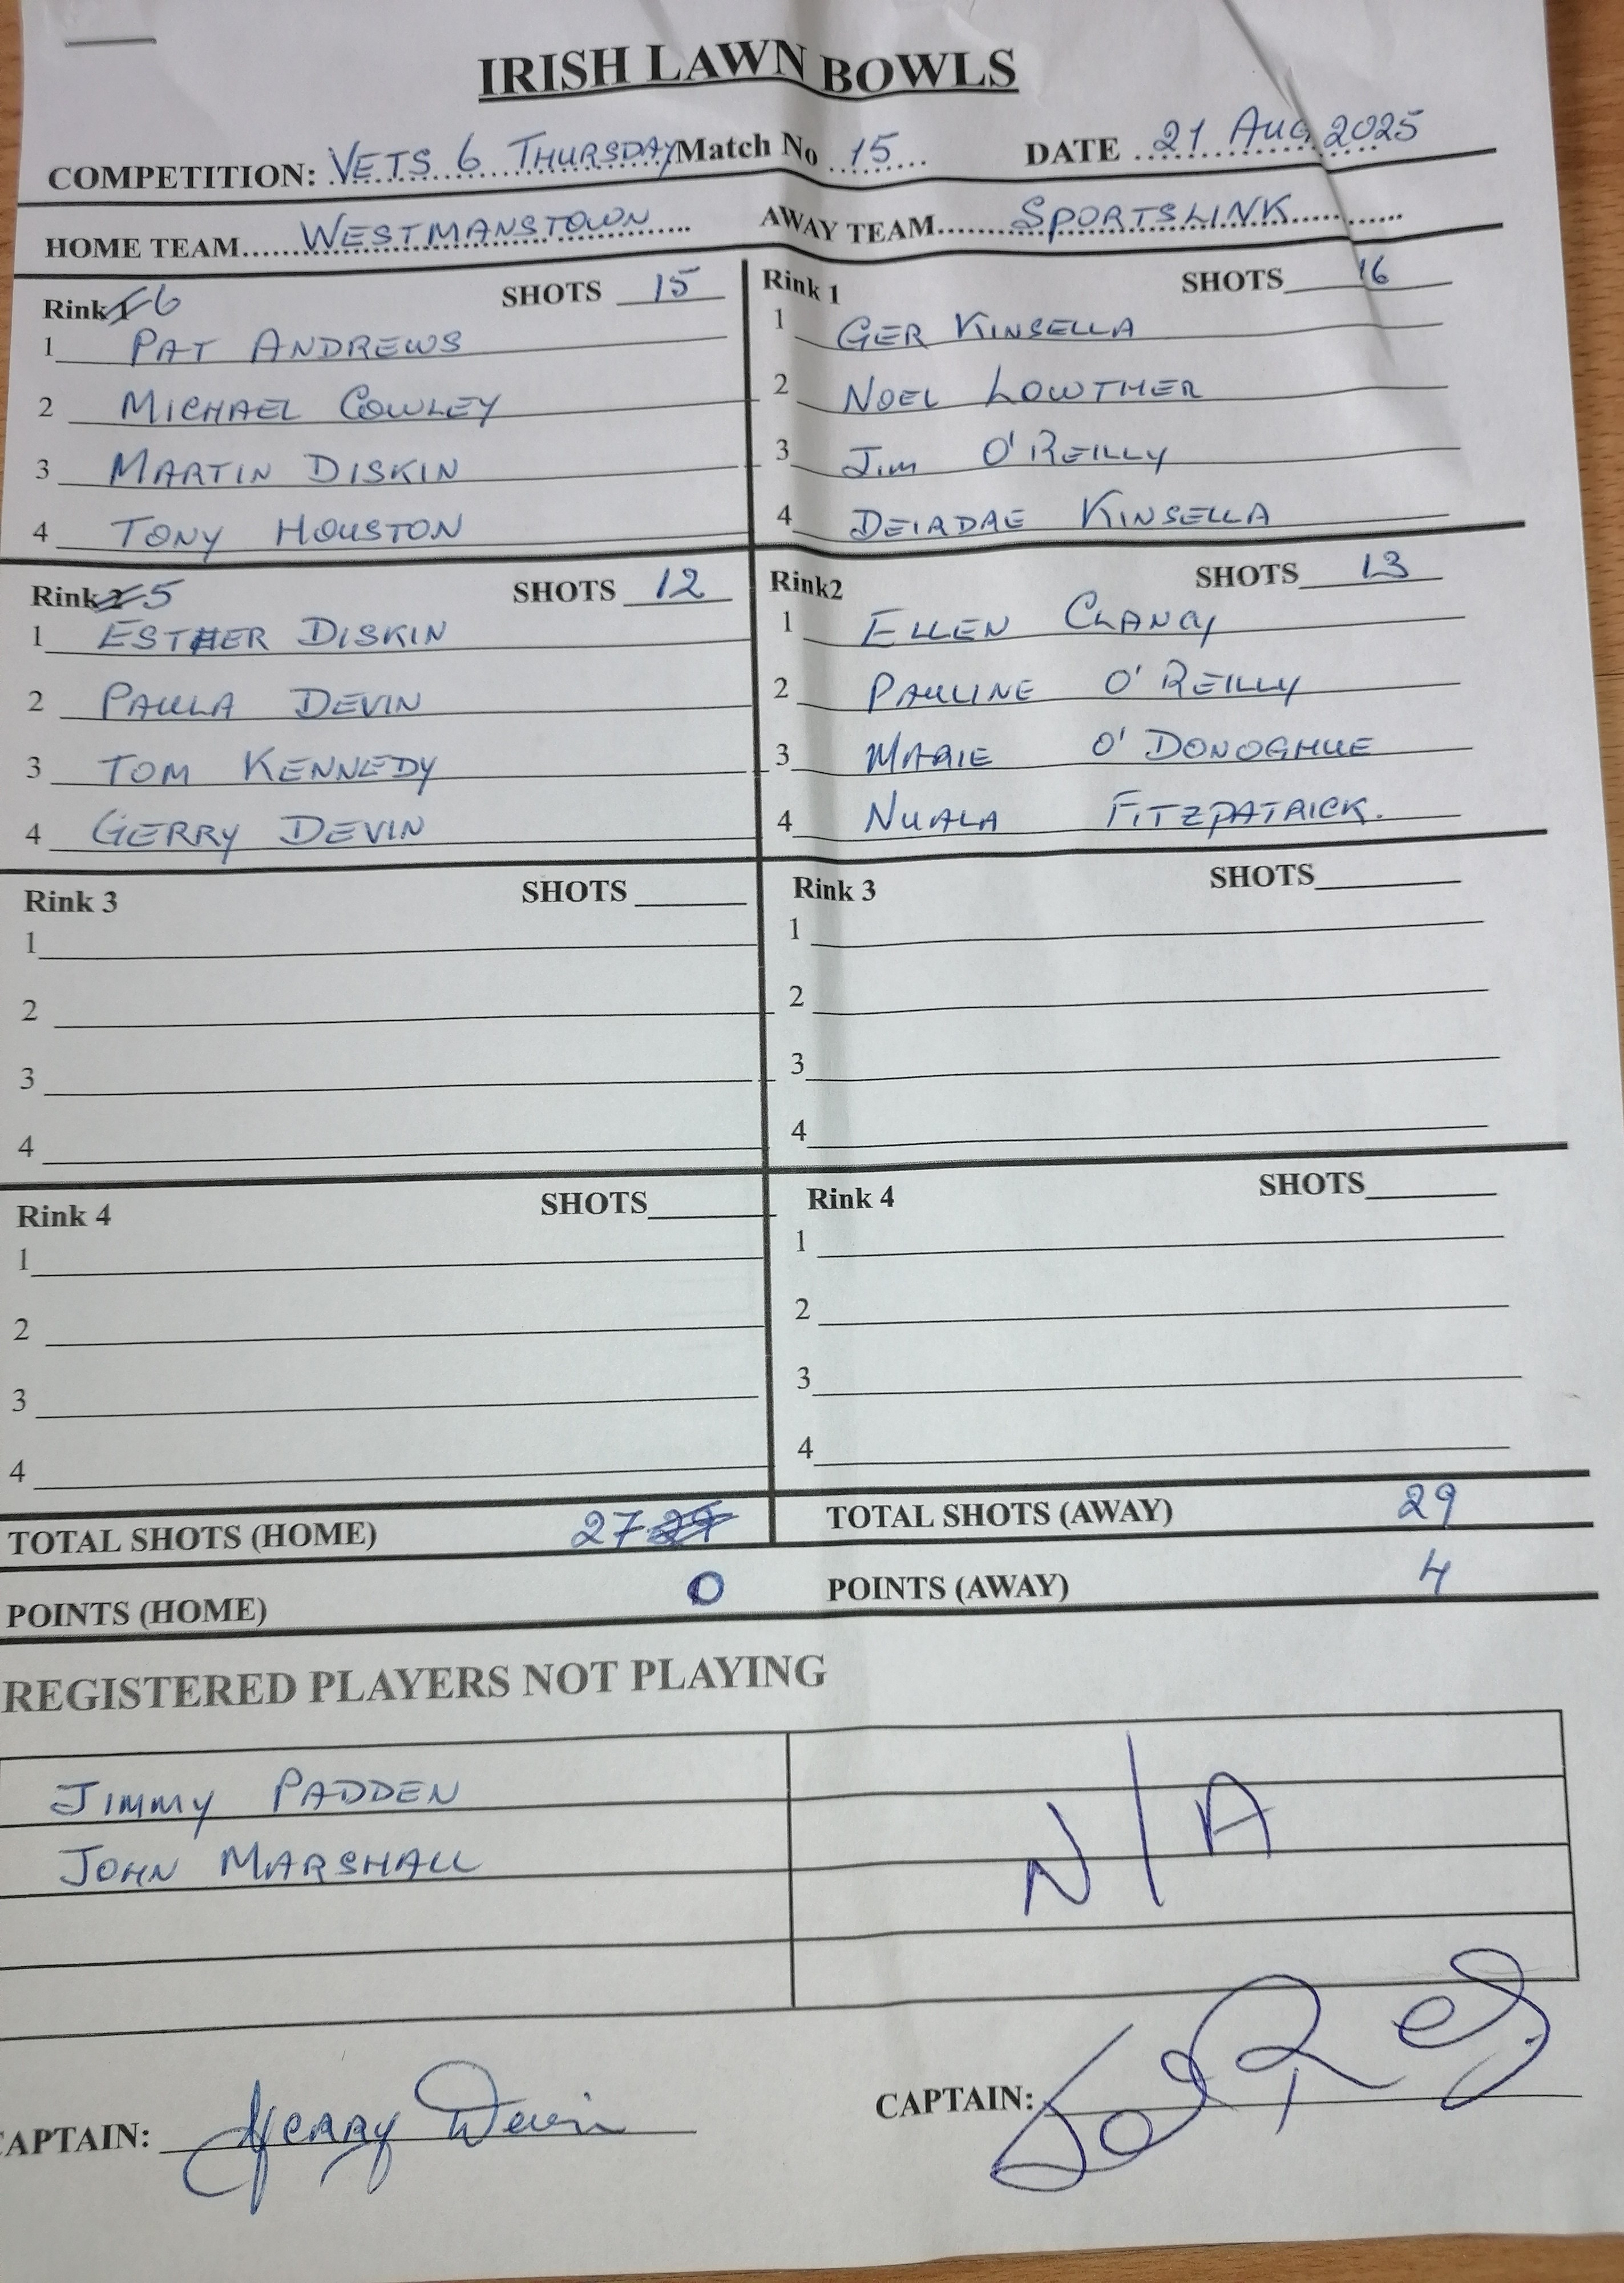 IRISH LAWN BOWLS
COMPETITION: VETS 6 THURSDAY Match No 15 DATE 21 AUG 2025
HOME TEAM WESTMANSTOWN AWAY TEAM SPORTSLINK
Rink 6 SHOTS 15
1 PAT ANDREWS
2 MICHAEL COWLEY
3 MARTIN DISKIN
4 TONY HOUSTON
Rink 1 SHOTS 16
1 GER KINSELLA
2 NOEL LOWTHER
3 JIM O'REILLY
4 DEIRDRE KINSELLA
Rink 5 SHOTS 12
1 ESTHER DISKIN
2 PAULA DEVIN
3 TOM KENNEDY
4 GERRY DEVIN
Rink2 SHOTS 13
1 ELLEN CLANCY
2 PAULINE O'REILLY
3 MARIE O'DONOGHUE
4 NUALA FITZPATRICK.
Rink 3 SHOTS
1
2
3
4
Rink 3 SHOTS
1
2
3
4
Rink 4 SHOTS
1
2
3
4
Rink 4 SHOTS
1
2
3
4
TOTAL SHOTS (HOME) 27 TOTAL SHOTS (AWAY) 29
POINTS (HOME) 0 POINTS (AWAY) 4
REGISTERED PLAYERS NOT PLAYING
JIMMY PADDEN
JOHN MARSHALL
N/A
CAPTAIN: Gerry Devin
CAPTAIN: